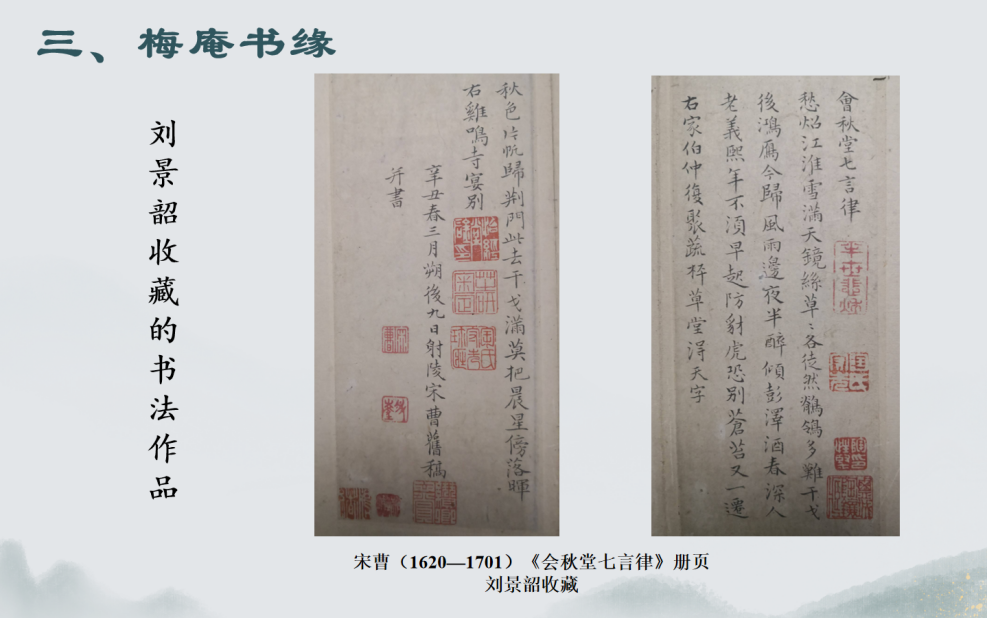 三、梅庵书缘
刘景韶收藏的书法作品
會秋堂七言律
愁炤江淮雪滿天鏡絲草〻各徒然鶺鴒多難干戈
後鴻鴈今歸風雨邊夜半醉傾彭澤酒春深人
老義熙年不須早起防豺虎恐別蒼苔又一遷
右家伯仲復聚蔬梓草堂得天字
秋色片帆歸荆門此去干戈滿莫把晨星傍落暉
右雞鳴寺宴別
辛丑春三月朔後九日射陵宋曹舊稿
并書
宋曹（1620—1701）《会秋堂七言律》册页
刘景韶收藏